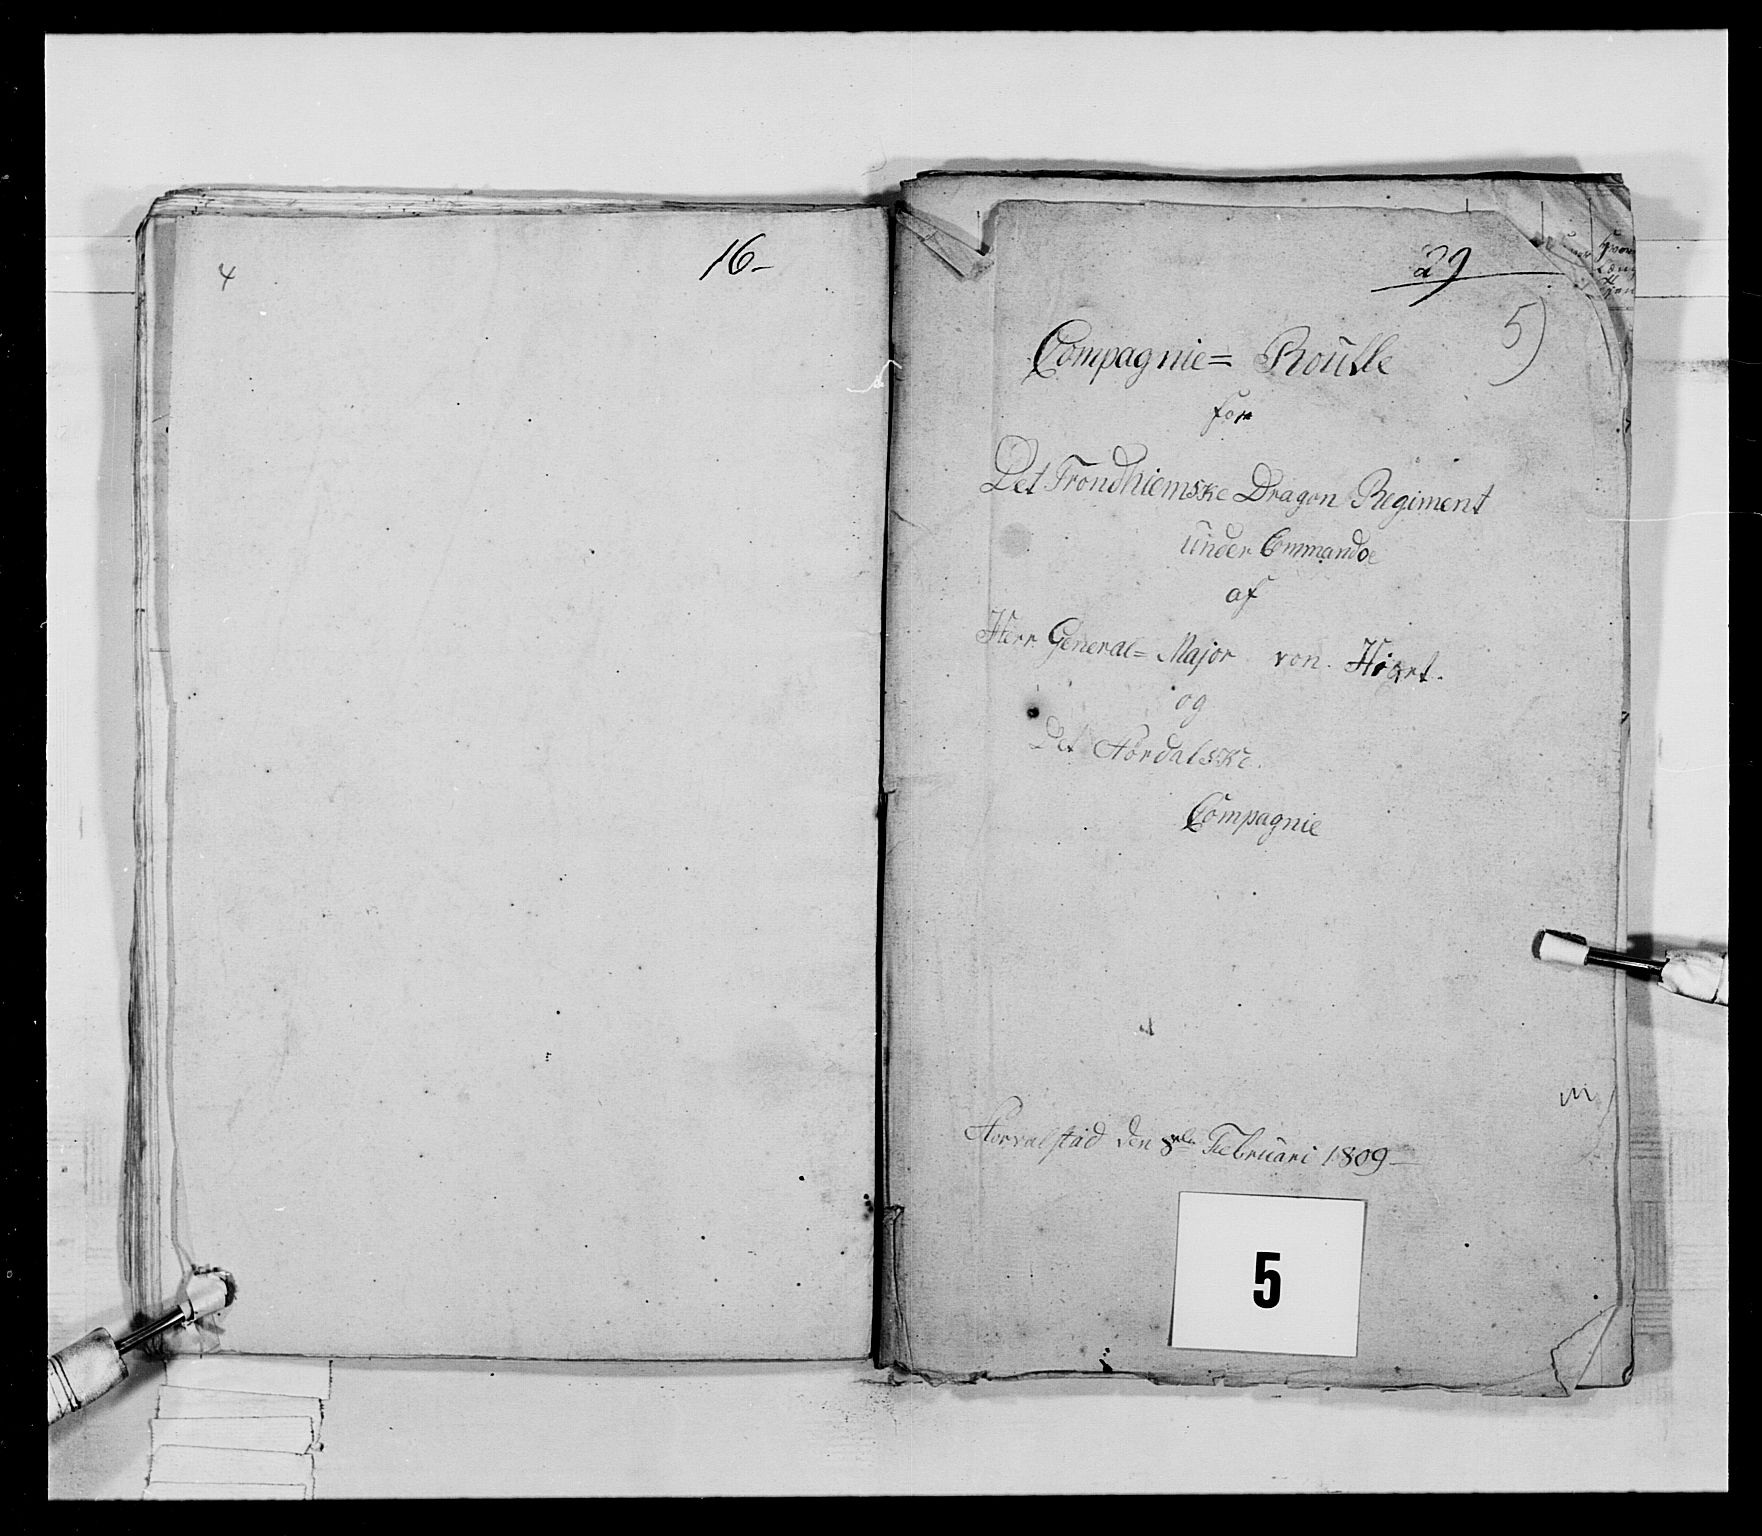 4
16-
29
5)
Compagnie= Roulle
for
Det Trondhiemske Dragon Regiment
under Commando
af
Herr General= Major von
og
Det
Compagnie
den 8de Februari 1809
5